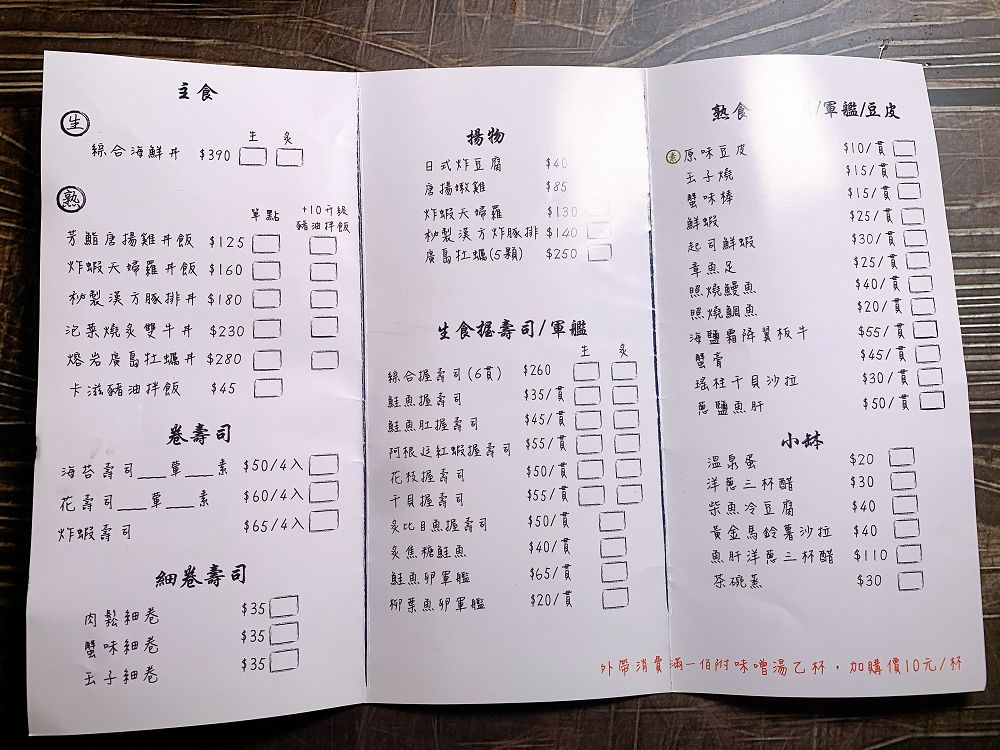 主食
生
生 炙
綜合海鮮丼 $390
熟
單點 +10升級豬油拌飯
芳鮨唐揚雞丼飯 $125
炸蝦天婦羅丼飯 $160
秘製漢方豚排丼 $180
泡菜燒炙雙牛丼 $230
熔岩廣島牡蠣丼 $280
卡滋豬油拌飯 $45
卷壽司
海苔壽司___葷___素 $50/4入
花壽司___葷___素 $60/4入
炸蝦壽司 $65/4入
細卷壽司
肉鬆細卷 $35
蟹味細卷 $35
玉子細卷 $35
揚物
日式炸豆腐 $40
唐揚嫩雞 $85
炸蝦天婦羅 $130
秘製漢方炸豚排 $140
廣島牡蠣(5顆) $250
生食握壽司/軍艦
生 炙
綜合握壽司(6貫) $260
鮭魚握壽司 $35/貫
鮭魚肚握壽司 $45/貫
阿根廷紅蝦握壽司 $55/貫
花枝握壽司 $50/貫
干貝握壽司 $55/貫
炙比目魚握壽司 $50/貫
炙焦糖鮭魚 $40/貫
鮭魚卵軍艦 $65/貫
柳葉魚卵軍艦 $20/貫
熟食 /軍艦/豆皮
素 原味豆皮 $10/貫
玉子燒 $15/貫
蟹味棒 $15/貫
鮮蝦 $25/貫
起司鮮蝦 $30/貫
章魚足 $25/貫
照燒鰻魚 $40/貫
照燒鯛魚 $20/貫
海鹽霜降翼板牛 $55/貫
蟹膏 $45/貫
瑤柱干貝沙拉 $30/貫
蔥鹽魚肝 $50/貫
小缽
溫泉蛋 $20
洋蔥三杯醋 $30
柴魚冷豆腐 $40
黃金馬鈴薯沙拉 $40
魚肝洋蔥三杯醋 $110
茶碗蒸 $30
外帶消費滿一佰附味噌湯乙杯，加購價10元/杯